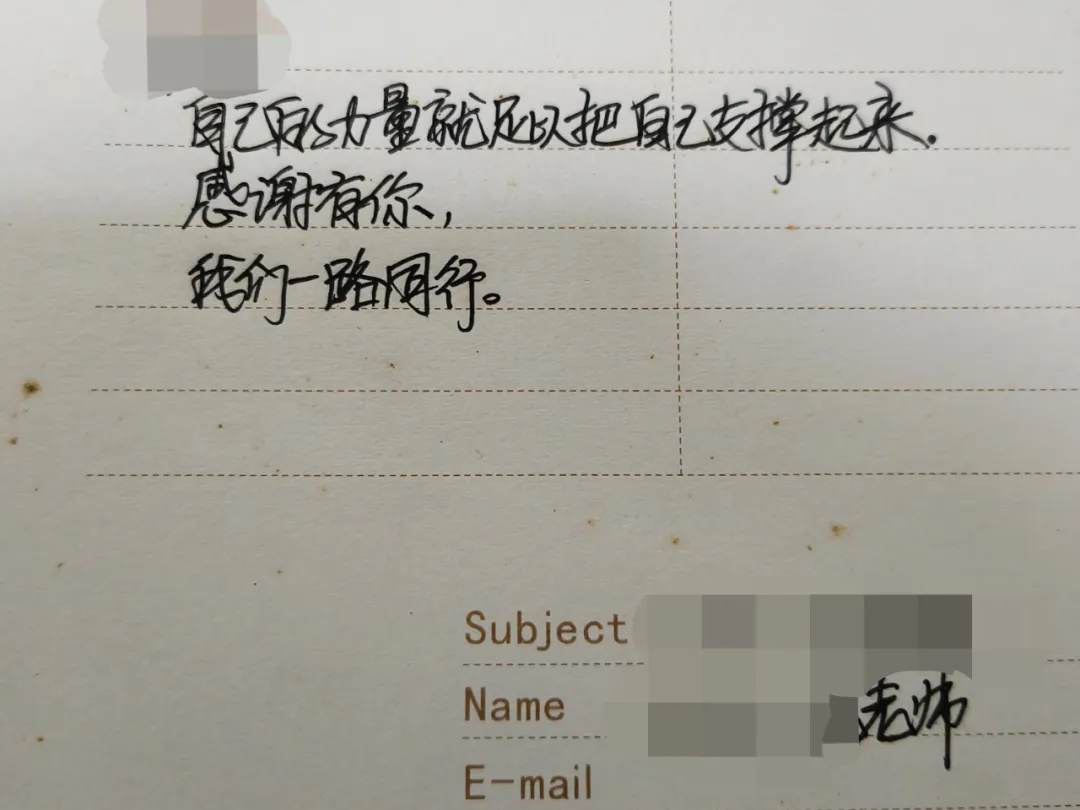 自己的力量就足以把自己支撑起来.
感谢有你,
我们一路同行。
Subject
Name 老师
E-mail